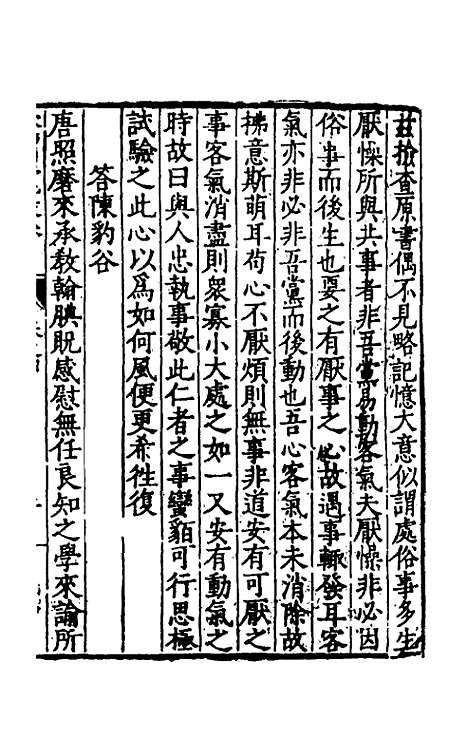 茲檢查原書偶不見略記憶大意似謂處俗事多生
厭懆所與共事者非吾黨易動客氣夫厭懆非必因
俗事而後生也要之有厭事之心故遇事輒發耳客
氣亦非必非吾黨而後動也吾心客氣本未消除故
拂意斯萌耳苟心不厭煩則無事非道安有可厭之
事客氣消盡則衆寡小大處之如一又安有動氣之
時故曰與人忠執事敬此仁者之事蠻貊可行思極
試驗之此心以為如何風便更希徃復
答陳豹谷
唐照磨來承教翰腆貺感慰無任良知之學來諭所